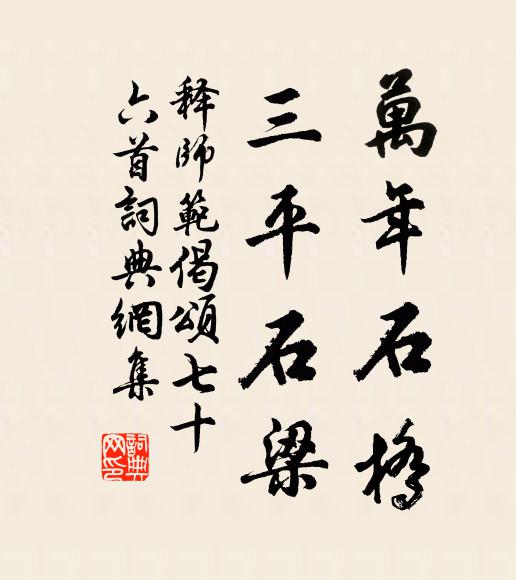 萬年石橋
三平石梁
释師範偈頌七十
六首詞典網集
詞典
网印